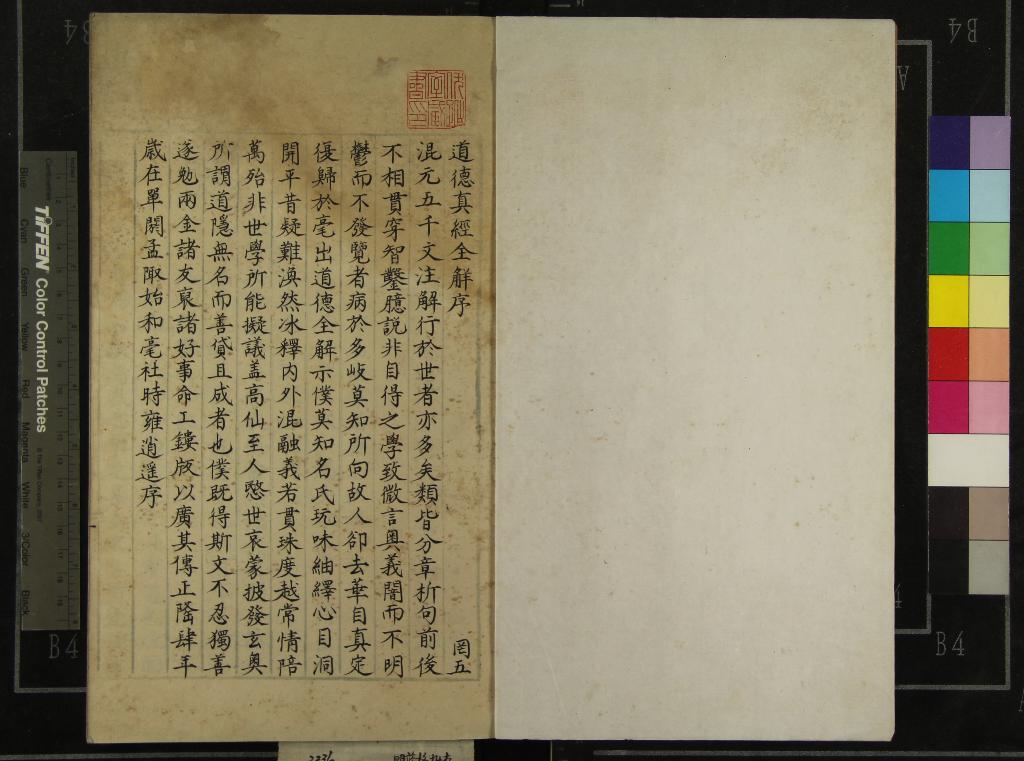 道德真經全解序
罔五
混元五千文注解行於世者亦多矣類皆分章析句前後
不相貫穿智鑿臆說非自得之學致微言奧義闇而不明
鬱而不發覽者病於多岐莫知所向故人卻去華自真定
復歸於亳出道德全解示僕莫知名氏玩味紬繹心目洞
開平昔疑難渙然冰釋內外混融義若貫珠度越常情陪
萬殆非世學所能擬議盖高仙至人愍世哀蒙披發玄奧
所謂道隱無名而善貸且成者也僕既得斯文不忍獨善
遂勉兩金諸友裒諸好事命工鏤版以廣其傳正隆肆年
歲在單閼孟陬始和亳社時雍逍遥序
TIFFEN Color Control Patches
Blue
Cyan
Green
Yellow
Red
Magenta
White
3/Color
Black
B4
B4
B4
B4
A